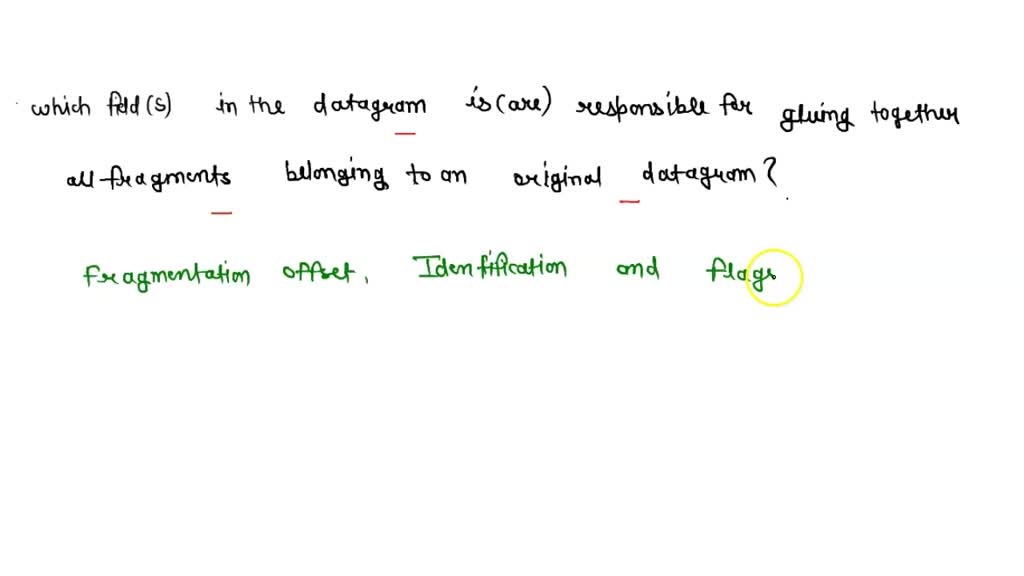 which field(s) in the datagram is(are) responsible for gluing together
all fragments belonging to an original datagram?
fragmentation offset, Identification and flags